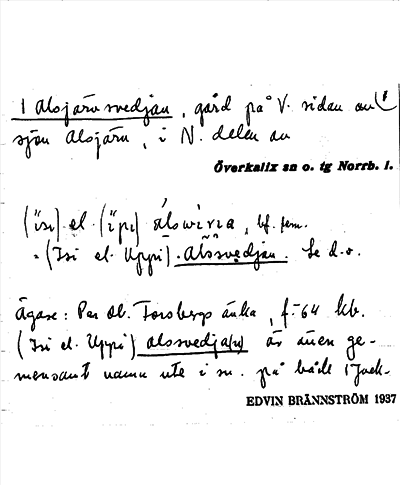 1 Alsjärvsvedjan, gård på V. sidan av
sjön Alsjärv, i N. delen av
Överkalix sn o. tg Norrb. l.
el. bf. fem.
= (Isi el. Uppi) Alssvedjan. Se d.o.
Ägare: Per Ol. Forsbergs änka, f. -64 kb.
(Isi el. Uppi) alssvedja(n) är även ge-
mensamt namn ute i sn. på både 1 Jack-
EDVIN BRÄNNSTRÖM 1937